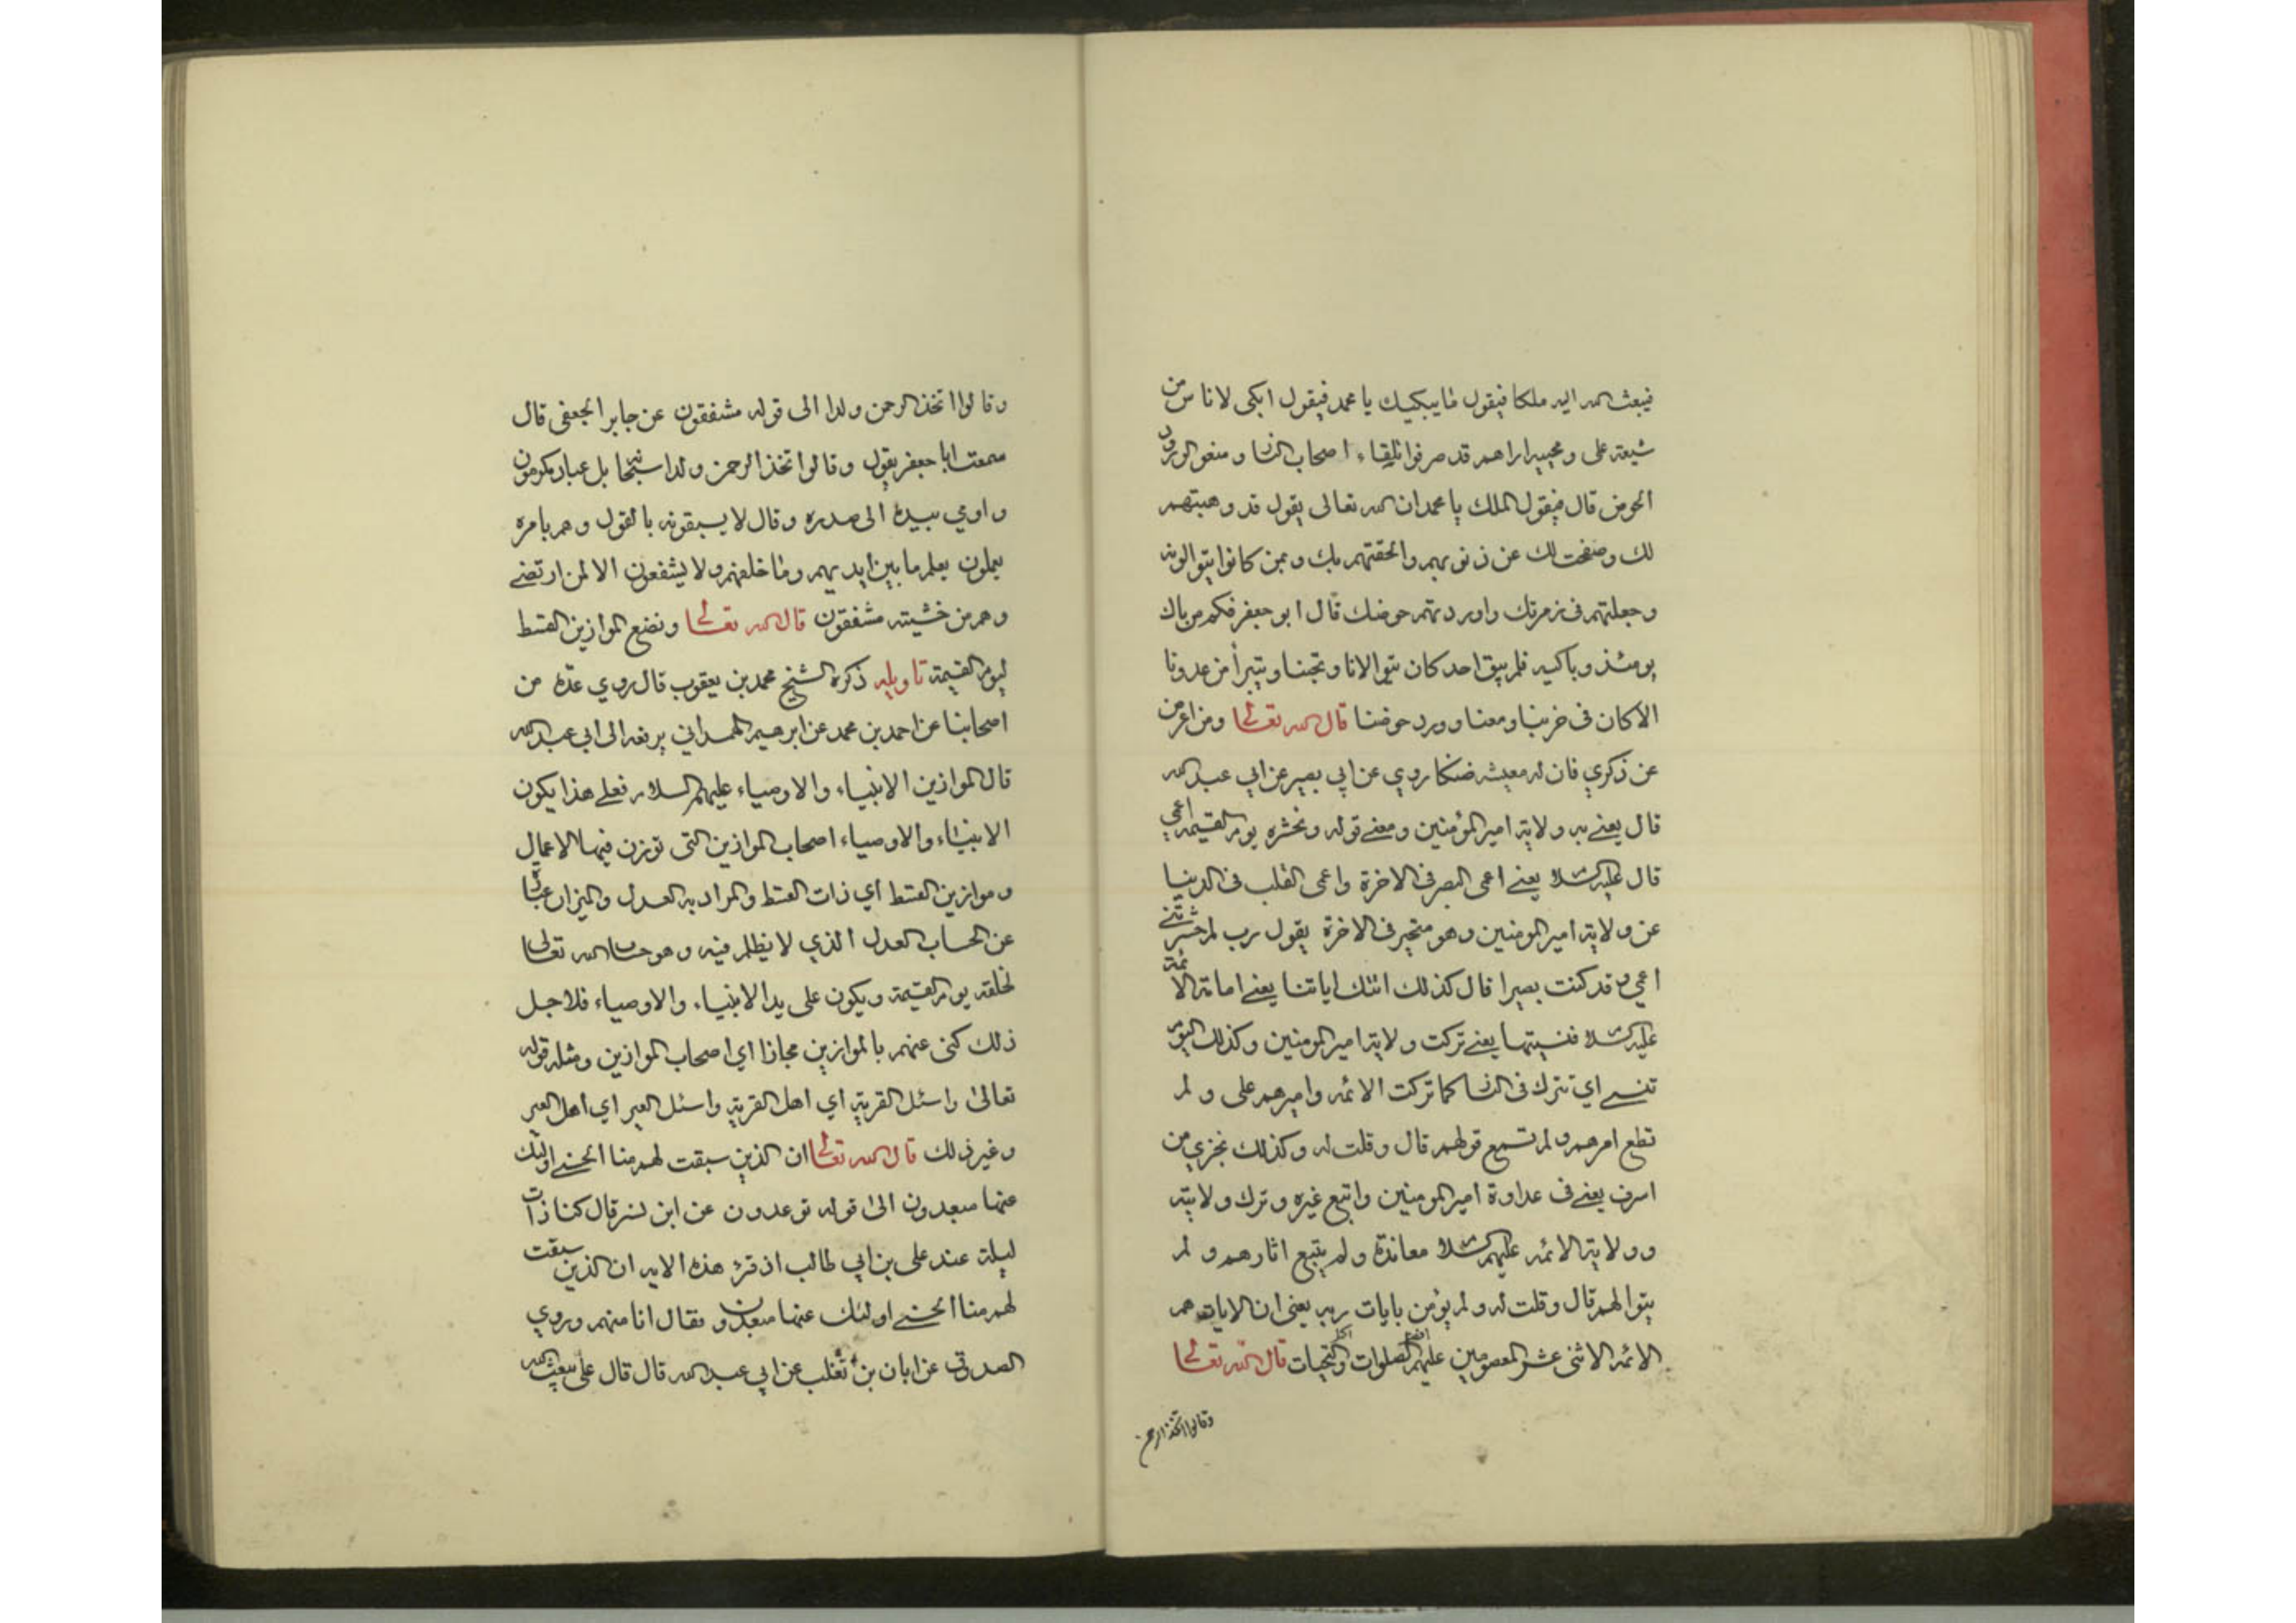 فيبعث الله اليه ملكا فيقول ما يبكيك يا محمد فيقول ابكى لاناس من
شيعة على ومحبيه اراهم قد صرفوا تلقاء اصحاب النار ومنعوا ورود
الحوض قال فيقول الملك يا محمد ان الله تعالى يقول قد وهبتهم
لك وصفحت لك عن ذنوبهم والحقتهم بك وبمن كانوا يتوالونه
وجعلتهم فى زمرتك واوردتهم حوضك قال ابو جعفر فكم من باك
يومئذ وباكيه فلم يبق احد كان يتوالانا ويحبنا ويتبرأ من عدونا
الا كان فى حزبنا ومعنا وورد حوضنا قال الله تعالى ومن اعرض
عن ذكري فان له معيشه ضنكا روي عن ابي بصير عن ابي عبد الله
قال يعنے به ولاية امير المؤمنين ومعنے قوله ونحشره يوم القيمه اعمي
قال عليه السلام يعنے اعمى البصر فى الاخرة واعمى القلب فى الدنيا
عن ولاية امير المومنين وهو متحير فى الاخرة يقول رب لم حشرتنے
اعمي وقد كنت بصيرا قال كذلك اتتك اياتنا يعنے امامة الائمة
عليهم السلام فنسيتها يعنے تركت ولاية امير المومنين وكذلك اليوم
تنسے اي تترك فى النار كما تركت الائمه واميرهم على ولم
تطع امرهم ولم تسمع قولهم قال وقلت له وكذلك نجزي من
اسرف يعنے فى عداوة امير المومنين واتبع غيره وترك ولايته
وولاية الائمه عليهم السلام معاندة ولم يتبع اثارهم ولم
يتوالهم قال وقلت له ولم يؤمن بايات ربه يعنى ان الايات هم
الائمه الاثنى عشر المعصومين عليهم افضل الصلوات واكمل التحيات قال الله تعالى
وقالوا اتخذ الرحمن
وقالوا اتخذ الرحمن ولدا الى قوله مشفقون عن جابر الجعفى قال
سمعت ابا جعفر يقول وقالوا اتخذ الرحمن ولدا سبحانه بل عباد مكرمون
واومي بيده الى صدره وقال لا يسبقونه بالقول وهم بامره
يعملون يعلم ما بين ايديهم وما خلفهم ولا يشفعون الا لمن ارتضے
وهم من خشيته مشفقون قال الله تعالى ونضع الموازين القسط
ليوم القيمة تاويله ذكره الشيخ محمد بن يعقوب قال روي عدة من
اصحابنا عن احمد بن محمد عن ابرهيم الهمداني يرفعه الى ابي عبد الله
قال الموازين الانبياء والاوصياء عليهم السلام فعلے هذا يكون
الانبياء والاوصياء اصحاب الموازين التى توزن فيها الاعمال
وموازين القسط اي ذات القسط والمراد به العدل والميزان عبارة
عن الحساب العدل الذي لا يظلم فيه وهو حساب الله تعالى
لخلقه يوم القيمة ويكون على يد الانبياء والاوصياء فلاجل
ذلك كنى عنهم بالموازين مجازا اي اصحاب الموازين ومثله قوله
تعالى واسئل القرية اي اهل القرية واسئل العير اي اهل العير
وغير ذلك قال الله تعالى ان الذين سبقت لهم منا الحسنے اولئك
عنها مبعدون الى قوله توعدون عن ابن بشر قال كنا ذات
ليلة عند على بن ابي طالب اذ قرء هذه الايه ان الذين سبقت
لهم منا الحسنے اولئك عنها مبعدون فقال انا منهم وروي
الصدوق عن ابان بن تغلب عن ابي عبد الله قال قال على يبعث الله